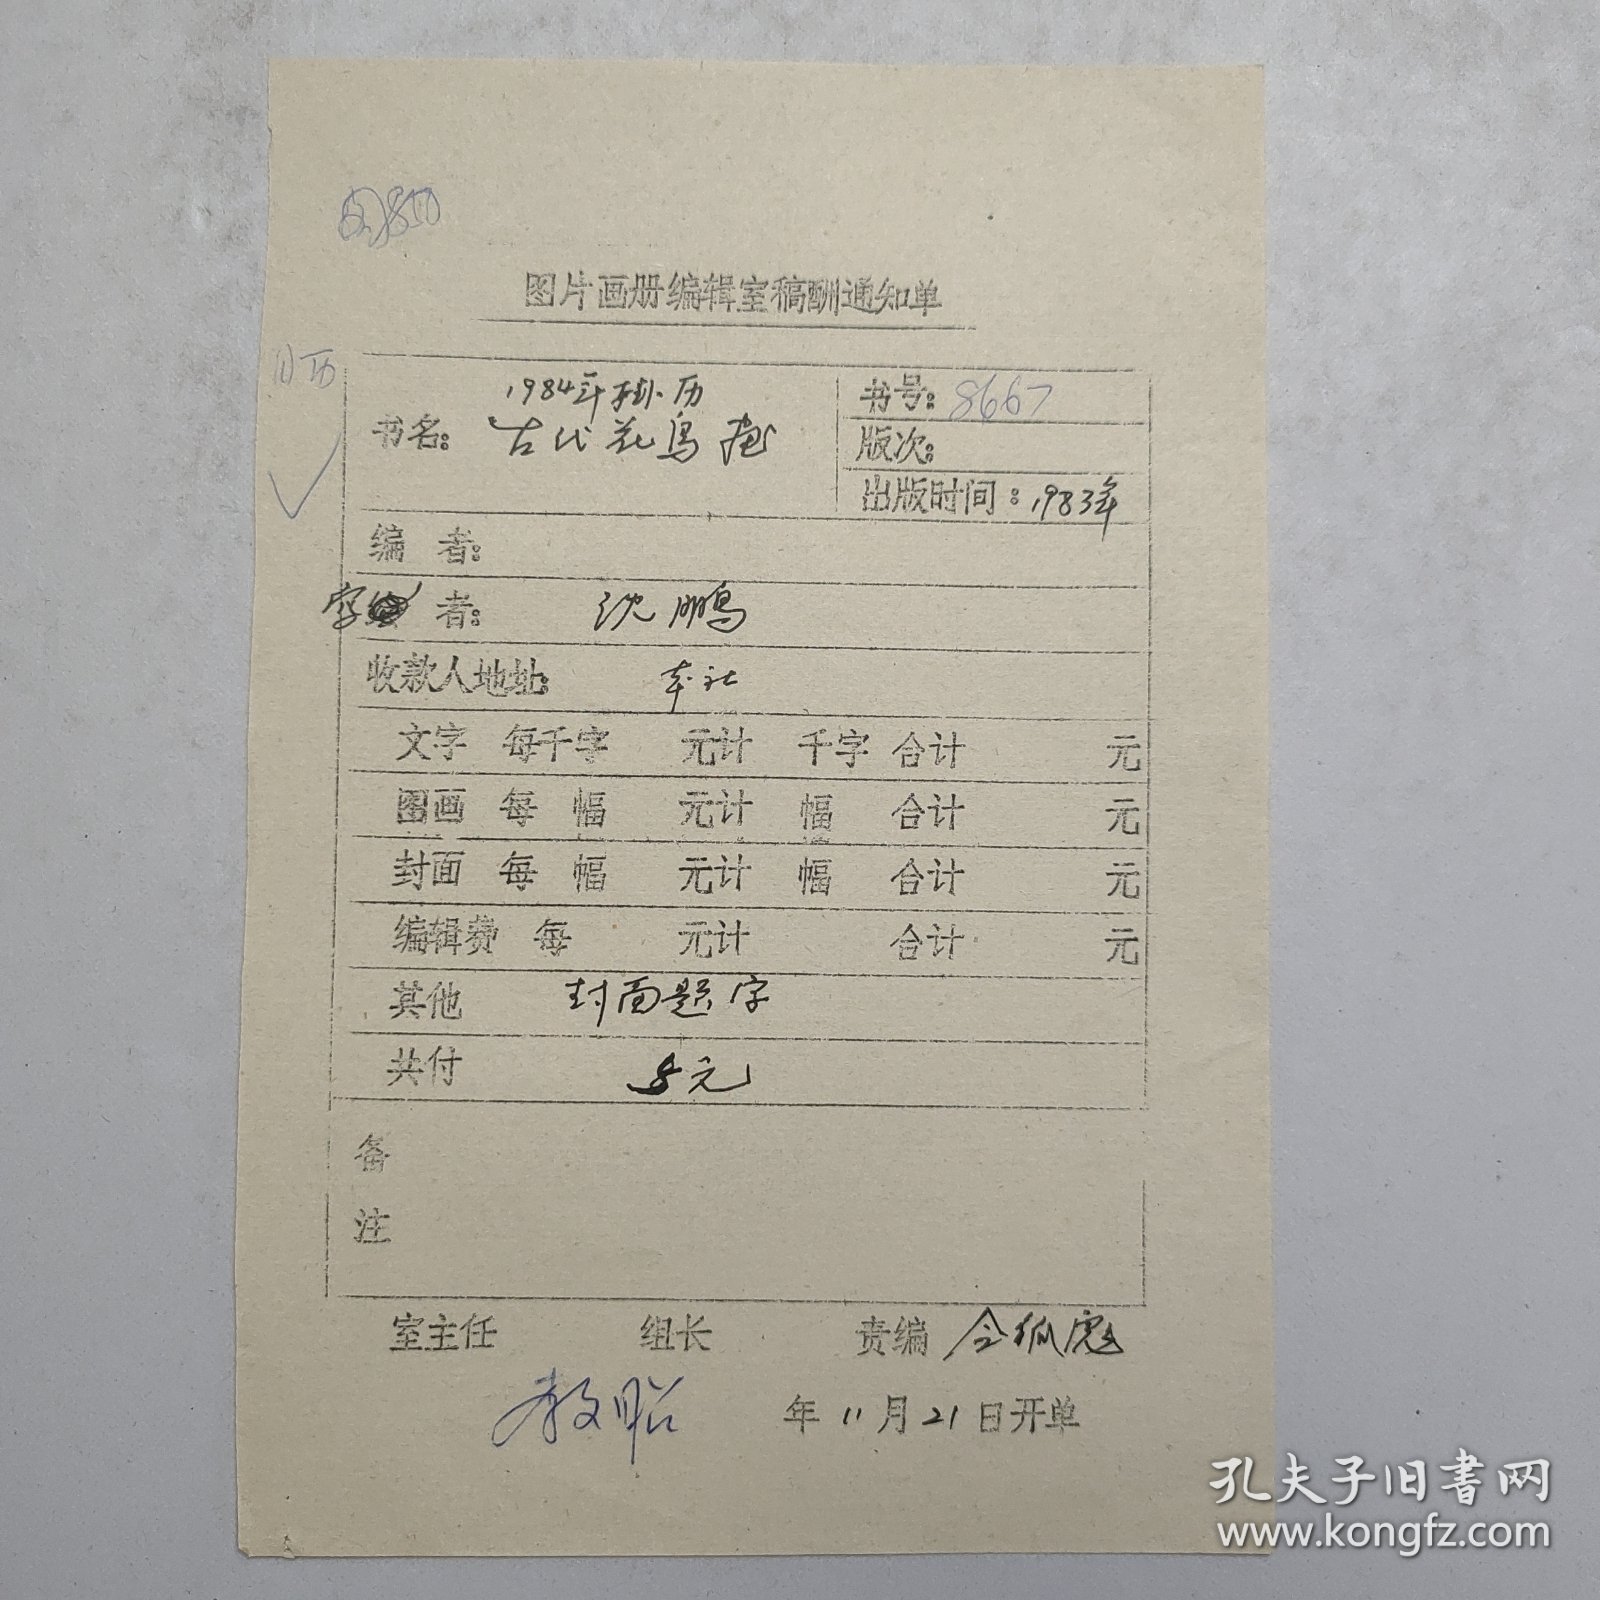 图片画册编辑室稿酬通知单
1984年挂历
书名：古代花鸟画
书号：8667
版次：
出版时间：1983年
编 者：
字 者：沈鹏
收款人地址：本社
文字 每千字 元计 千字 合计 元
图画 每 幅 元计 幅 合计 元
封面 每 幅 元计 幅 合计 元
编辑费 每 元计 合计 元
其他 封面题字
共付 5元
备
注
室主任 组长 责编 令狐彪
年 11 月 21 日开单
孔夫子旧书网
www.kongfz.com